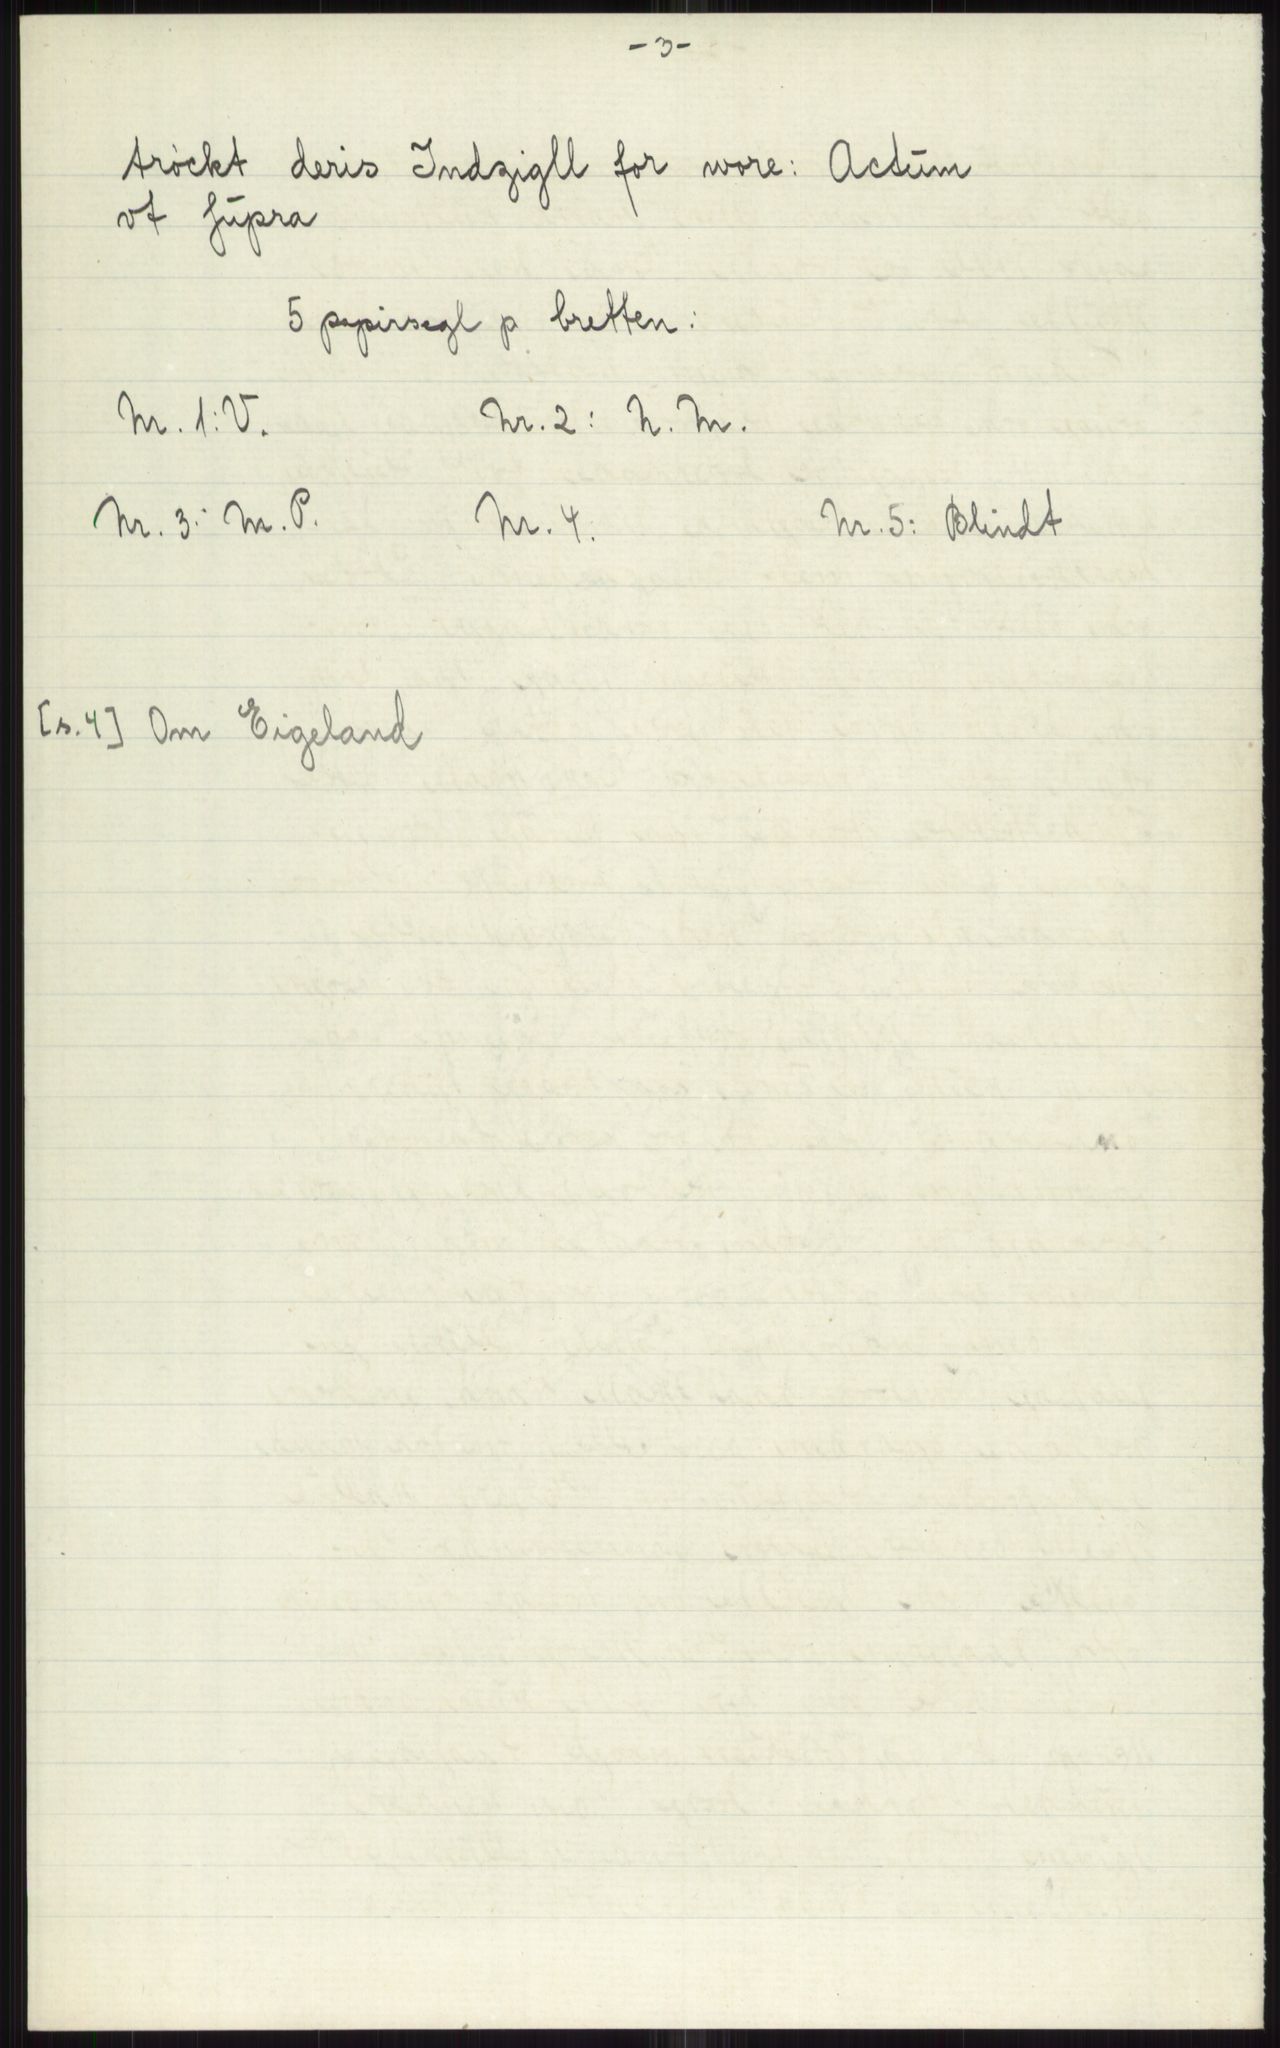 -3-
tröckt deris Indzigll for wore: Actūm
vt sūpra
5 papirsegl p bretten:
Nr. 1: V. Nr. 2: N. M.
Nr. 3: M. P. Nr. 4: Nr. 5: Blindt
[s. 4] Om Eigeland